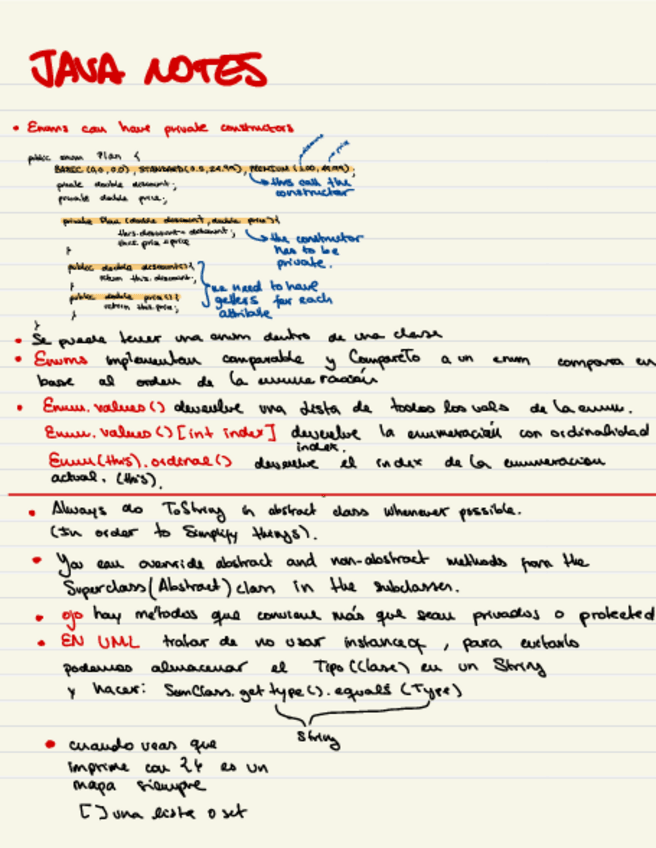 JAVA NOTES
• Enums can have private constructors
public enum Plan {
BASIC (0.0, 0.0), STANDARD(0.5, 24.99), PREMIUM (1.00, 49.99);
this call the
constructor
private double descount;
private double price;
private Plan (double descount, double price){
this.descount = descount;
this.price = price
}
the constructor
has to be
private.
public double descount(){
return this.descount;
}
public double price() {
return this.price;
}
we need to have
getters for each
attribute
}
• Se puede tener una enum dentro de una clase
• Enums implementan comparable y CompareTo a un enum compara en
base al orden de la enumeración
• Enum.values() devuelve una lista de todos los vals de la enum.
Enum.values()[int index] devuelve la enumeración con ordinalidad
index.
Enum(this).ordenal() devuelve el index de la enumeracion
actual. (this).
• Always do ToString in abstract class whenever possible.
(In order to Simplify things).
• You can override abstract and non-abstract methods from the
Superclass(Abstract) class in the subclasses.
• ojo hay métodos que conviene más que sean privados o protected
• EN UML tratar de no usar instanceof, para evitarlo
podemos almacenar el Tipo(Clase) en un String
y hacer: SomClass.getType().equals(Type)
String
• cuando veas que
imprime con {} es un
mapa siempre
[] una lista o set